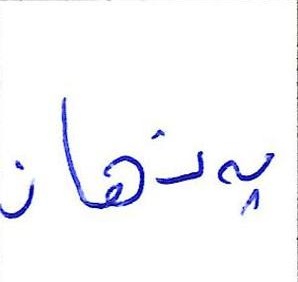 پەنهان